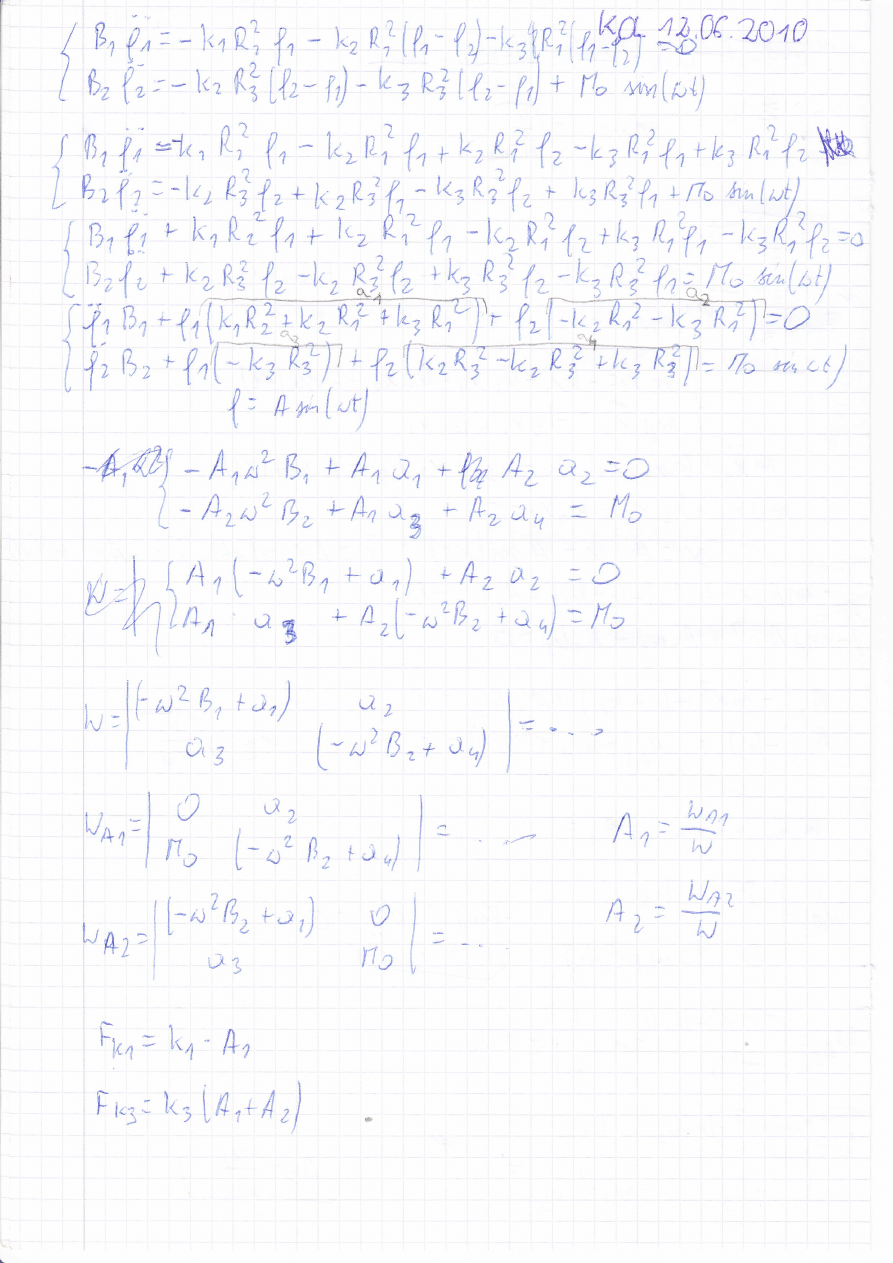 KA 12.06.2010
B₁ φ̈₁ = - k₁ R₂² φ₁ - k₂ R₁² (φ₁-φ₂) - k₃ R₁² (φ₁-φ₂) = 0
B₂ φ̈₂ = - k₂ R₃² (φ₂-φ₁) - k₃ R₃² (φ₂-φ₁) + M₀ sin(ωt)
B₁ φ̈₁ = -k₁ R₂² φ₁ - k₂ R₁² φ₁ + k₂ R₁² φ₂ - k₃ R₁² φ₁ + k₃ R₁² φ₂
B₂ φ̈₂ = -k₂ R₃² φ₂ + k₂ R₃² φ₁ - k₃ R₃² φ₂ + k₃ R₃² φ₁ + M₀ sin(ωt)
B₁ φ̈₁ + k₁ R₂² φ₁ + k₂ R₁² φ₁ - k₂ R₁² φ₂ + k₃ R₁² φ₁ - k₃ R₁² φ₂ = 0
B₂ φ̈₂ + k₂ R₃² φ₂ - k₂ R₃² φ₂ + k₃ R₃² φ₂ - k₃ R₃² φ₁ = M₀ sin(ωt)
a₁ a₂
φ̈₁ B₁ + φ₁ (k₁ R₂² + k₂ R₁² + k₃ R₁²) + φ₂ (-k₂ R₁² - k₃ R₁²) = 0
a₃ a₄
φ̈₂ B₂ + φ₁ (-k₃ R₃²) + φ₂ (k₂ R₃² - k₂ R₃² + k₃ R₃²) = M₀ sin(ωt)
φ = A sin(ωt)
- A₁ω² B₁ + A₁ a₁ + A₂ a₂ = 0
- A₂ω² B₂ + A₁ a₃ + A₂ a₄ = M₀
A₁ (-ω² B₁ + a₁) + A₂ a₂ = 0
A₁ · a₃ + A₂ (-ω² B₂ + a₄) = M₀
W = | (-ω² B₁ + a₁) a₂ | = ....
| a₃ (-ω² B₂ + a₄) |
W_A1 = | 0 a₂ | = ... A₁ = W_A1 / W
| M₀ (-ω² B₂ + a₄) |
W_A2 = | (-ω² B₂ + a₁) 0 | = ... A₂ = W_A2 / W
| a₃ M₀ |
F_k1 = k₁ · A₁
F_k3 = k₃ (A₁ + A₂)